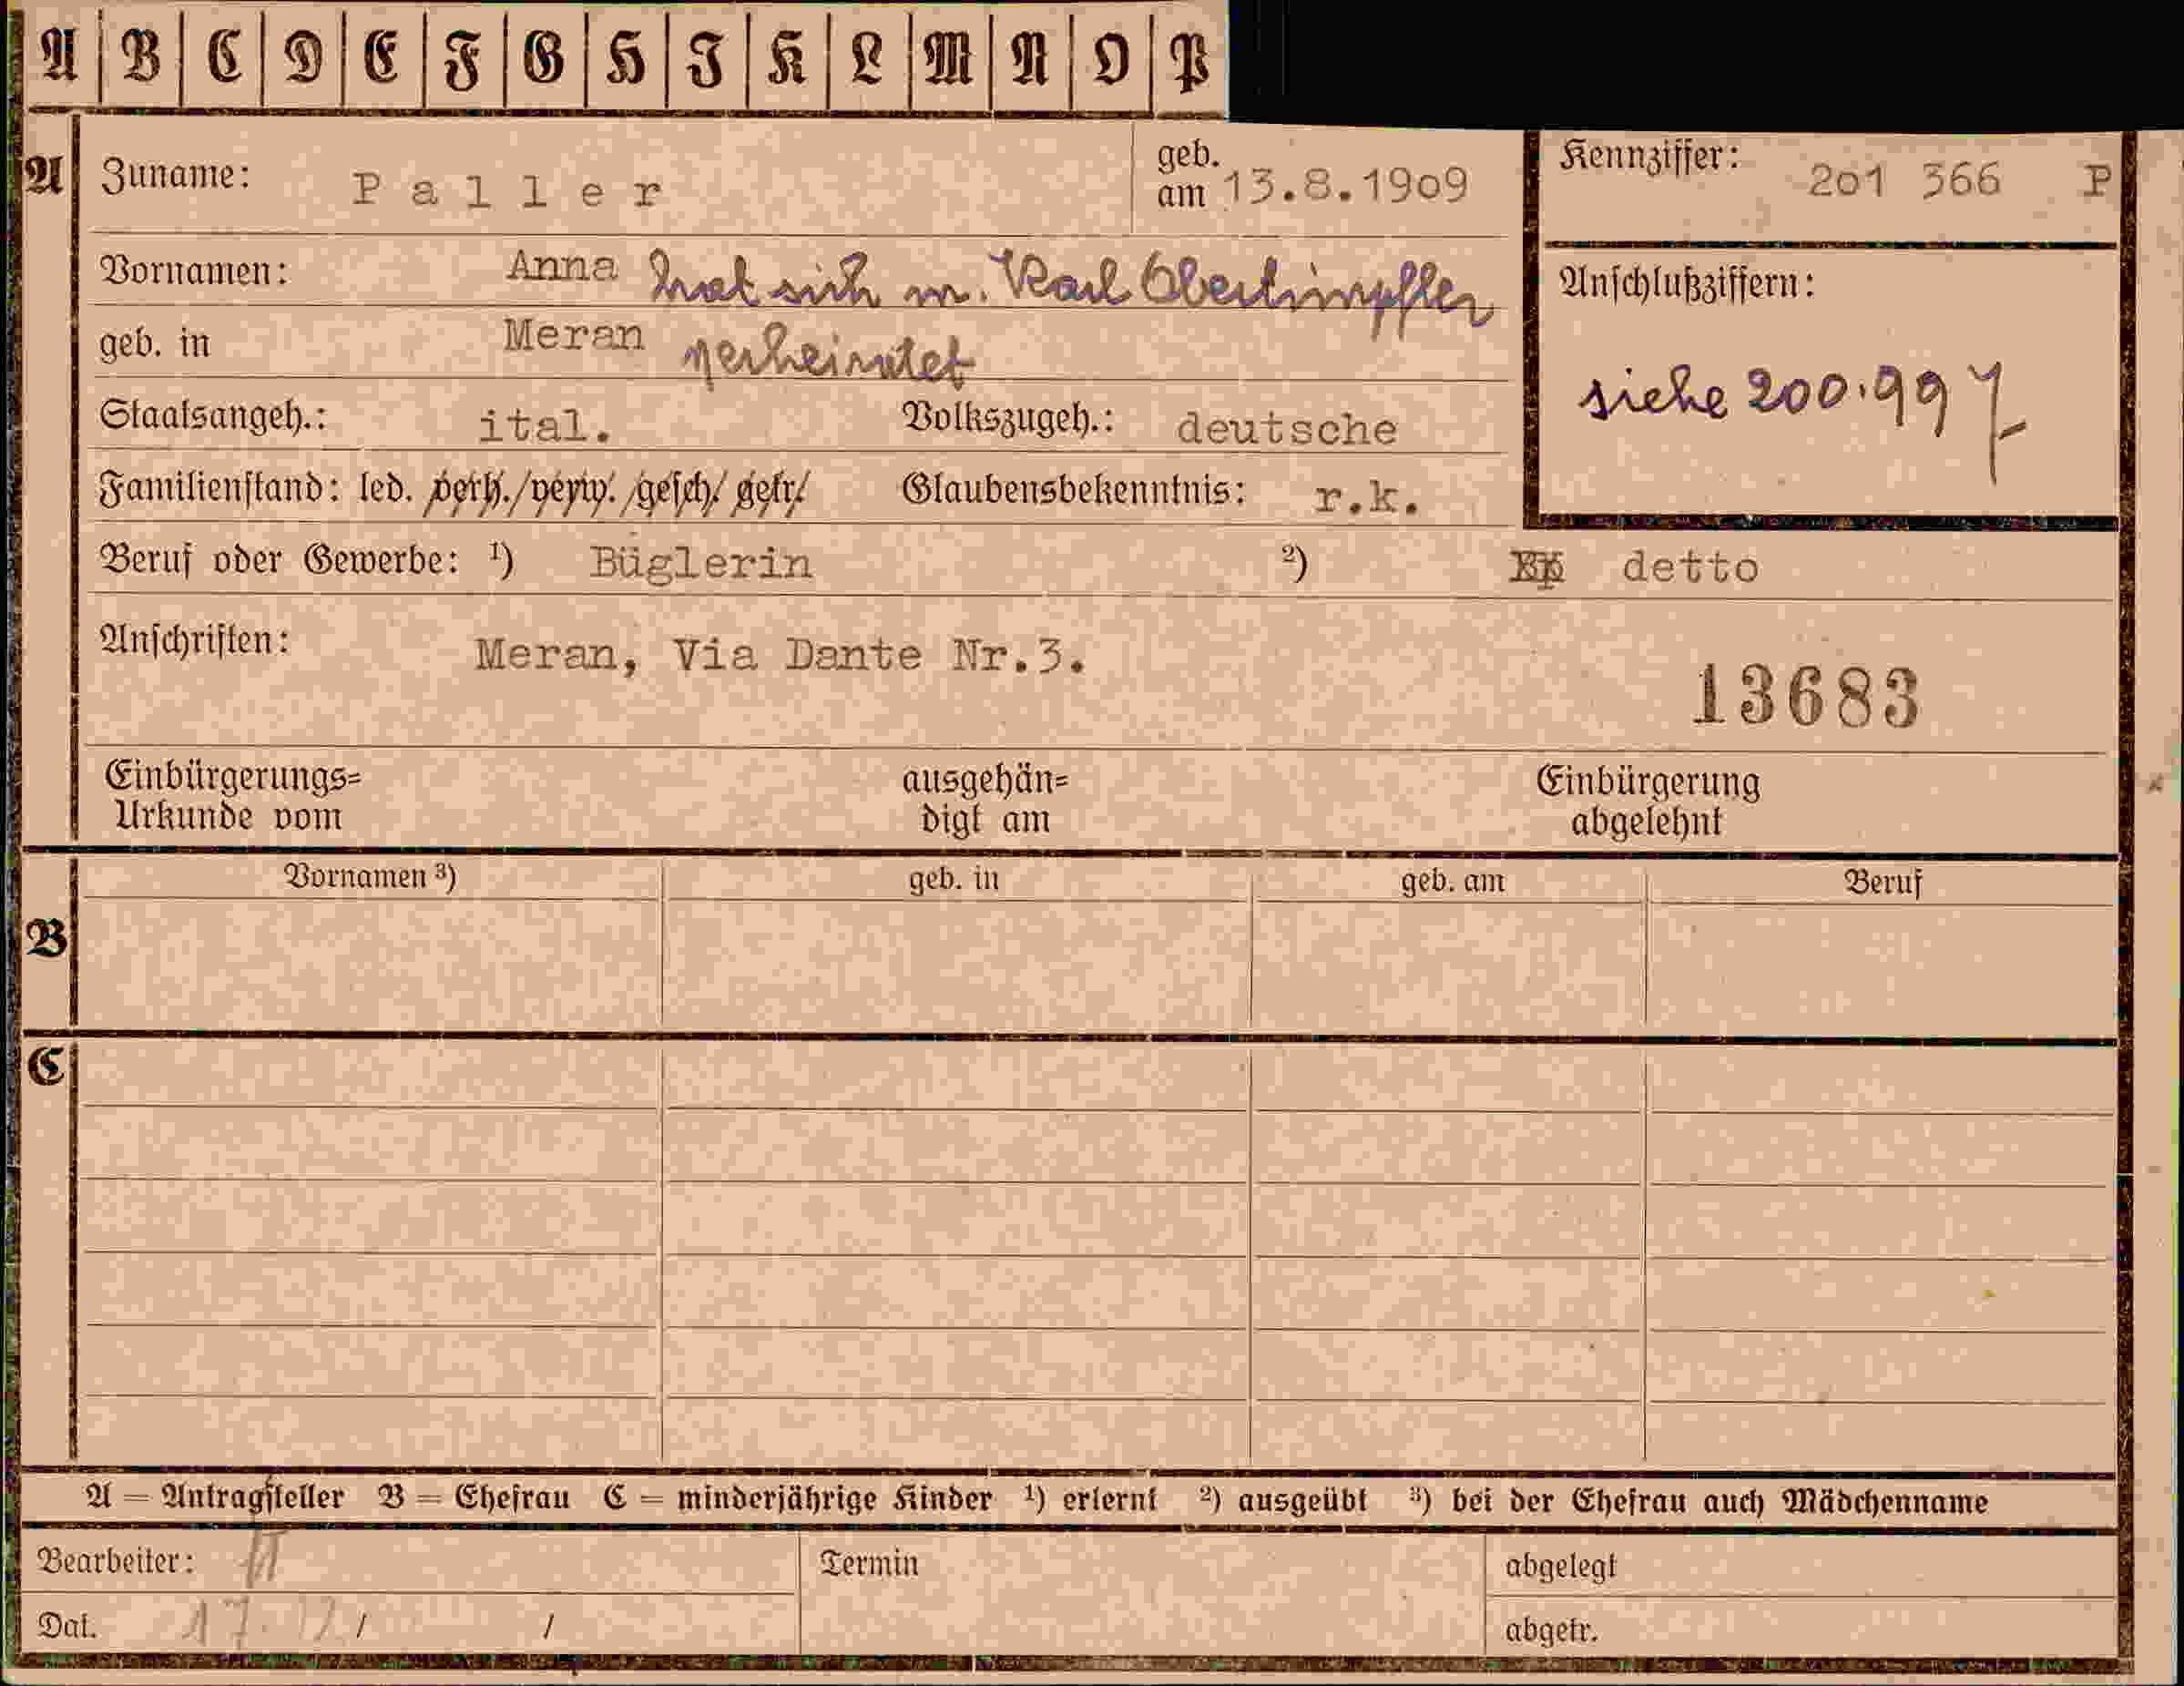 A B C D E F G H I K L M N O P
A
Zuname: Paller geb. am 13.8.1909
Kennziffer: 201 366 P
Vornamen: Anna hat sich m. Karl Obertimpfler
geb. in Meran verheiratet
Anschlußziffern:
siehe 200.997
Staatsangeh.: ital. Volkszugeh.: deutsche
Familienstand: led. verh./verw./gesch./getr. Glaubensbekenntnis: r.k.
Beruf oder Gewerbe: ¹) Büglerin ²) detto
Anschriften: Meran, Via Dante Nr.3.
13683
Einbürgerungs= ausgehän= Einbürgerung
Urkunde vom digt am abgelehnt
Vornamen ³) geb. in geb. am Beruf
B
C
A = Antragsteller B = Ehefrau C = minderjährige Kinder ¹) erlernt ²) ausgeübt ³) bei der Ehefrau auch Mädchenname
Bearbeiter: Termin abgelegt
Dat. 17. / / abgetr.